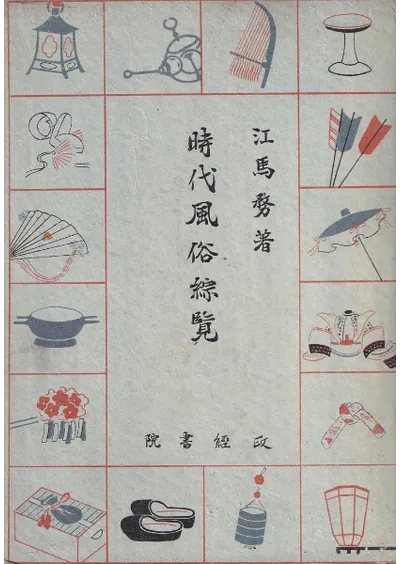 江馬務著
時代風俗綜覧
政經書院